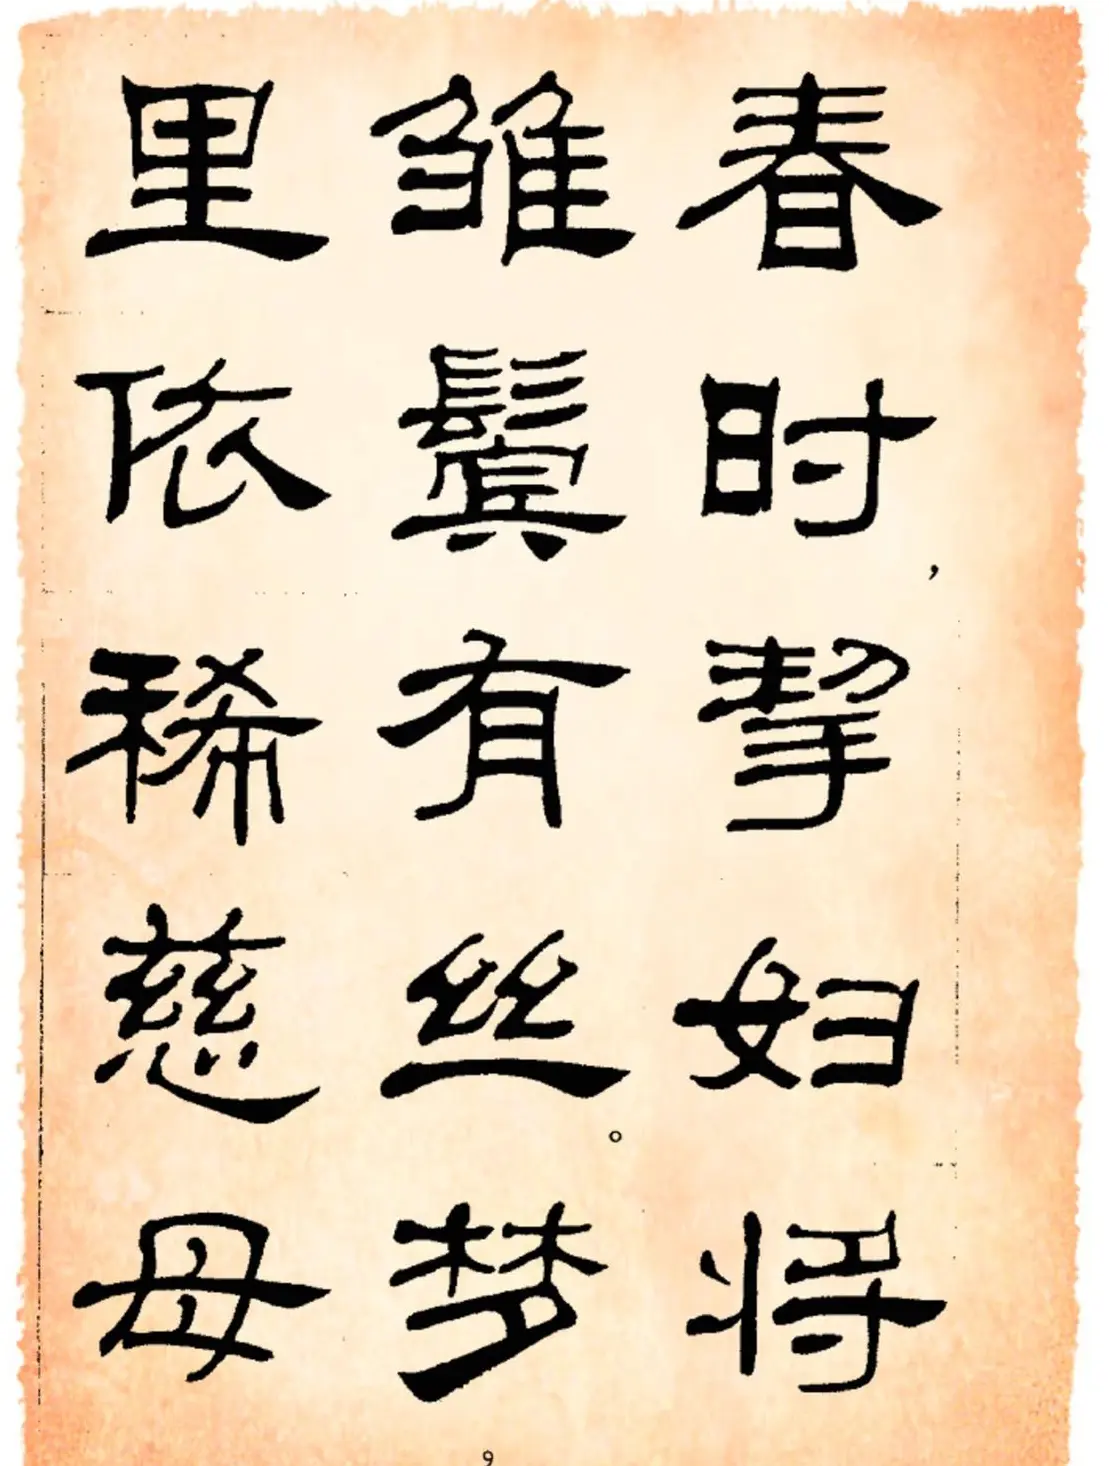 春时，挈妇将
雏鬓有丝。梦
里依稀慈母
9